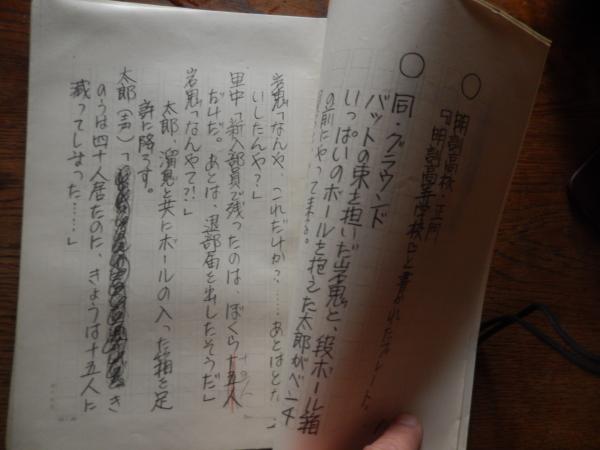 ○明訓高校・正門
「明訓高等学校」と書かれたプレート。
○同・グラウンド
バットの束を抱いだ岩鬼と、段ボール箱
いっぱいのボールを抱えた太郎がベンチ
の前にやって来る。
岩鬼「なんや、これだけか？……あとはどな
いしたんや？」
里中「新入部員で残ったのは、ぼくら十五人
だけだ。あとは、退部届を出したそうだ」
岩鬼「なんやて?!」
太郎、溜息と共にボールの入った箱を足
許に降ろす。
太郎（声）「き
のうは四十人居たのに、きょうは十五人に
減ってしまった……」